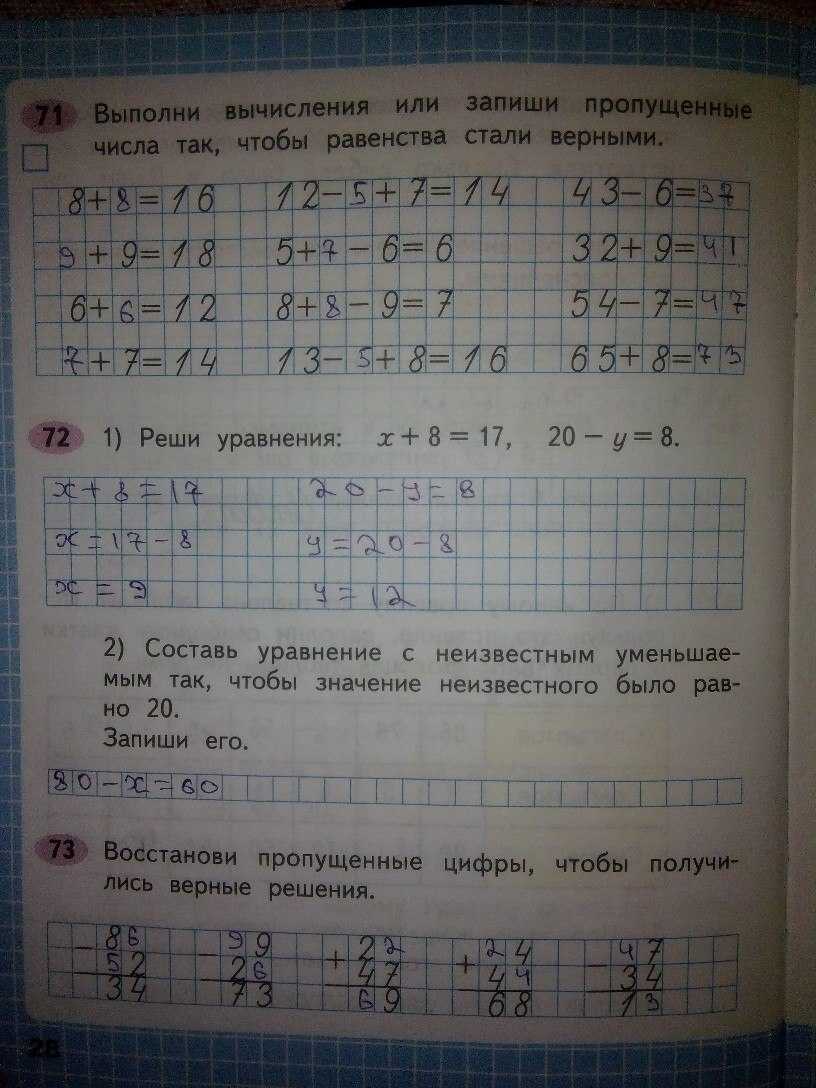 71 Выполни вычисления или запиши пропущенные
числа так, чтобы равенства стали верными.
8+8=16 12-5+7=14 43-6=37
9+9=18 5+7-6=6 32+9=41
6+6=12 8+8-9=7 54-7=47
7+7=14 13-5+8=16 65+8=73
72 1) Реши уравнения: x + 8 = 17, 20 − y = 8.
x+8=17 20-y=8
x=17-8 y=20-8
x=9 y=12
2) Составь уравнение с неизвестным уменьшае-
мым так, чтобы значение неизвестного было рав-
но 20.
Запиши его.
80-x=60
73 Восстанови пропущенные цифры, чтобы получи-
лись верные решения.
- 86 - 99 + 22 + 24 - 47
52 26 47 44 34
34 73 69 68 13
28